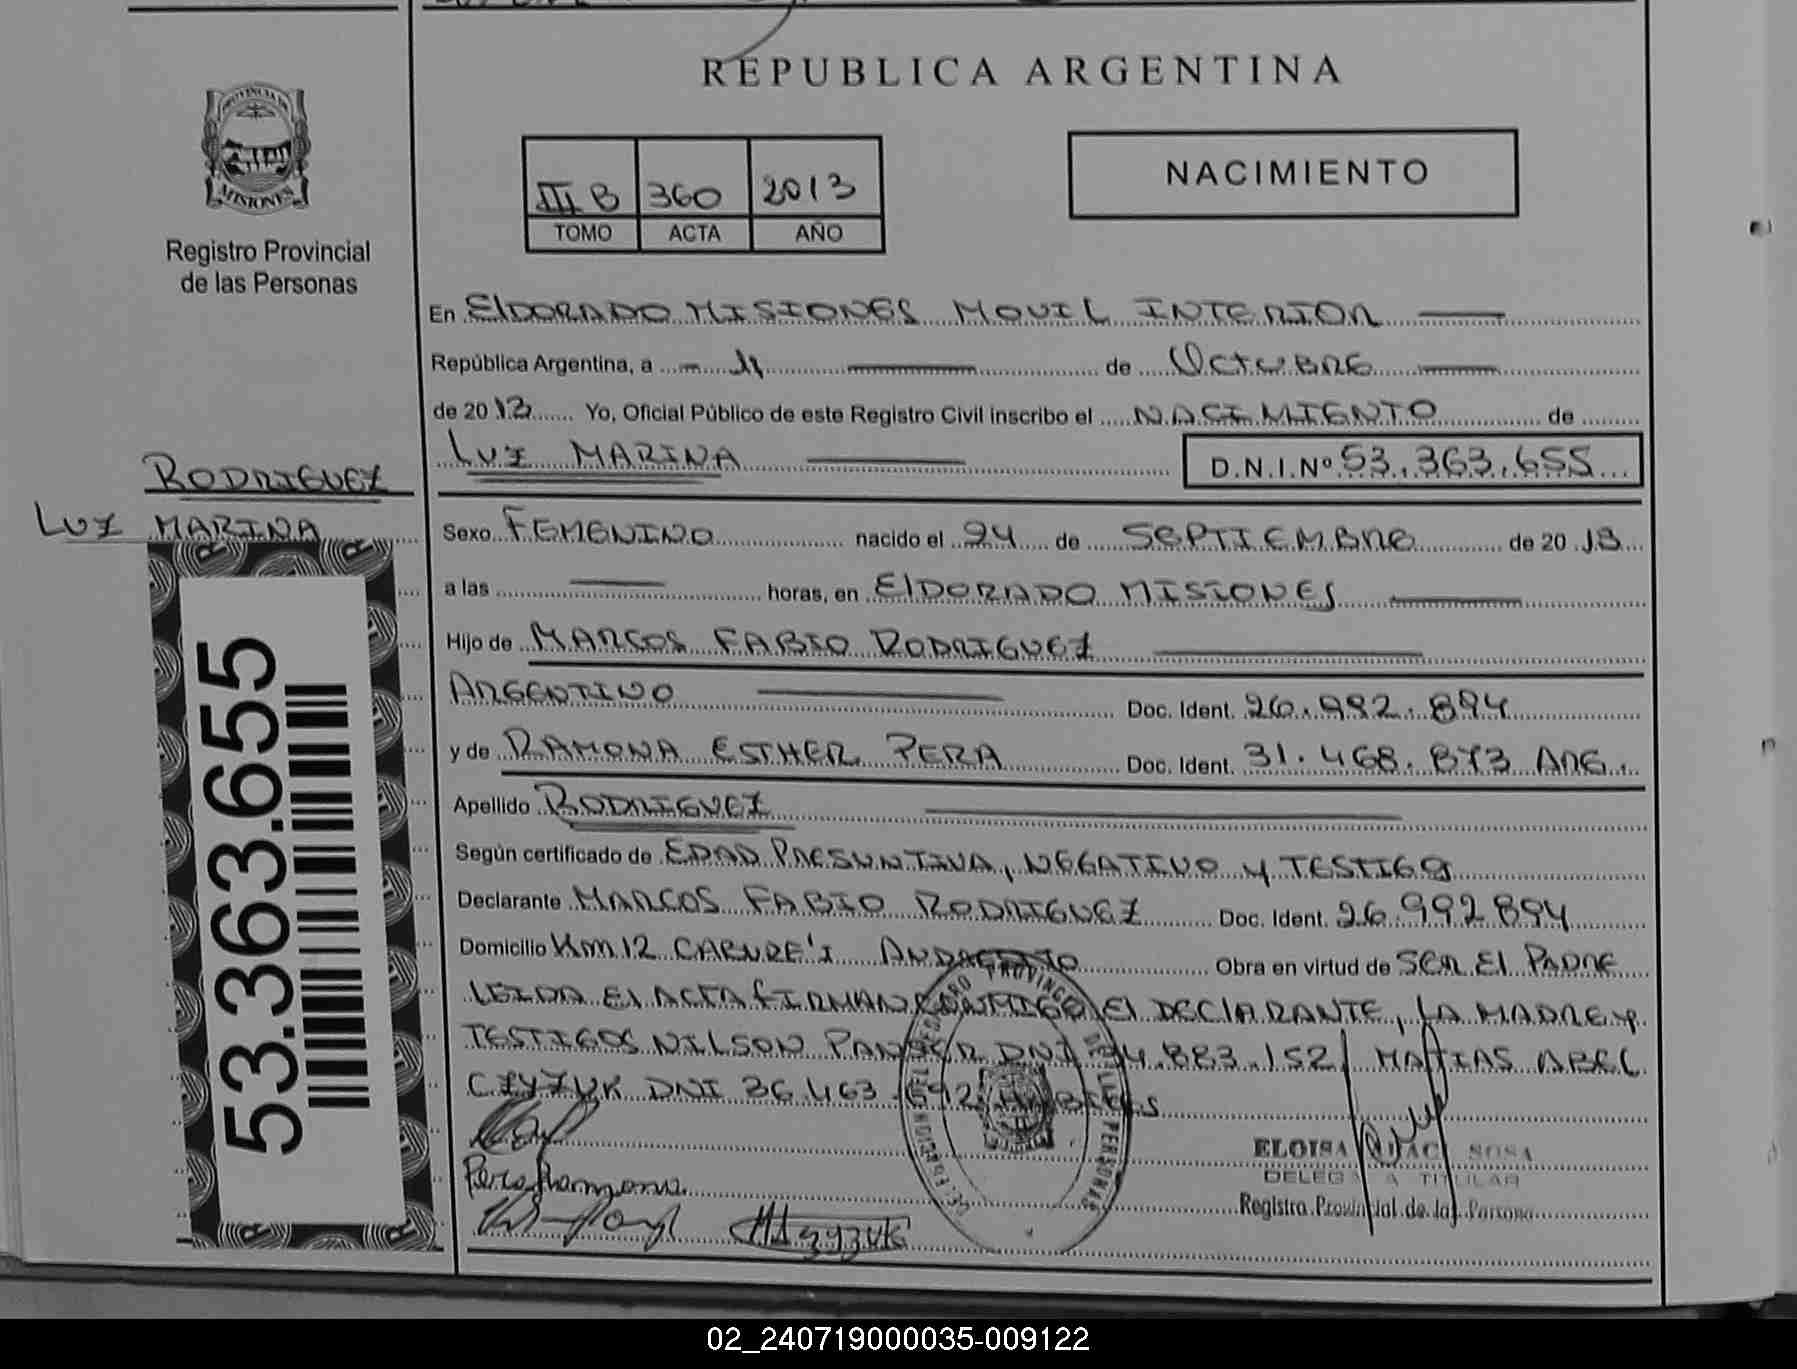 REPUBLICA ARGENTINA
PROVINCIA DE
MISIONES
Registro Provincial
de las Personas
III B 360 2013
TOMO ACTA AÑO
NACIMIENTO
En ElDORADO MISIONES MOVIL INTERIOR
República Argentina, a 11 de Octubre
de 2013 Yo, Oficial Público de este Registro Civil inscribo el NACIMIENTO de
LUZ MARINA D.N.I.Nº 53.363.655
RODRIGUEZ
LUZ MARINA
53.363.655
Sexo FEMENINO nacido el 24 de SEPTIEMBRE de 2013
a las horas, en ElDORADO MISIONES
Hijo de MARCOS FABIO RODRIGUEZ
ARGENTINO Doc. Ident. 26.992.894
y de RAMONA ESTHER PERA Doc. Ident. 31.468.873 ARG.
Apellido RODRIGUEZ
Según certificado de EDAD PRESUNTIVA, NEGATIVO y TESTIGO
Declarante MARCOS FABIO RODRIGUEZ Doc. Ident. 26.992894
Domicilio Km 12 CABURE'I ANDRESITO Obra en virtud de SER El PADRE
LEIDA El ACTA fIRMAN CONMIGO El DEClARANTE, LA MADRE y
TESTIGOS NILSON DNI 34.883.152 / MATIAS ABEL
CZYZUK DNI 36.463.692 HABILES
Pera Ramona
ELOISA SOSA
DELEGADA TITULAR
Registro Provincial de las Personas
PROVINCIAL DE LAS PERSONAS
02_240719000035-009122